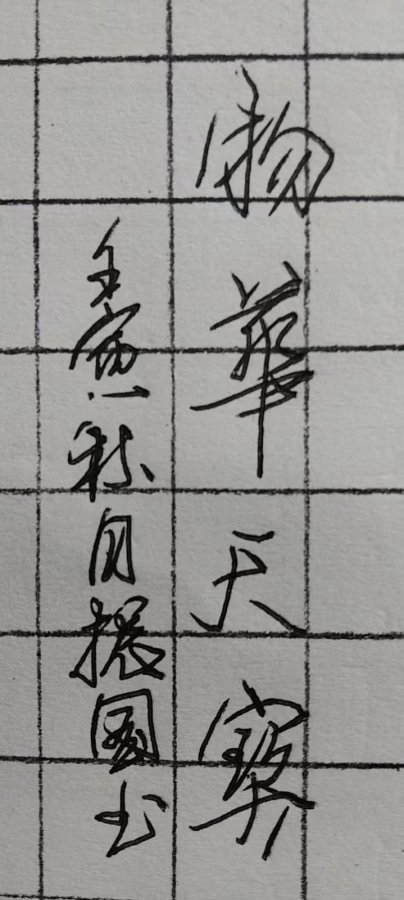 物華天寶
壬寅秋月振國书